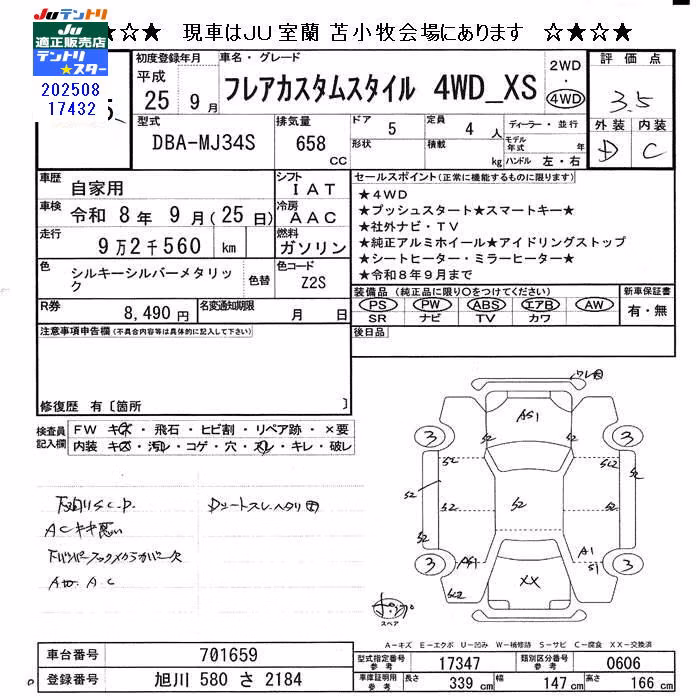 JUテントリ
JU
適正販売店
テントリ
★スター
☆★☆ 現車はJU室蘭 苫小牧会場にあります ☆★☆
202508
17432
初度登録年月
平成
25年9月
車名・グレード
フレアカスタムスタイル 4WD_XS
2WD
・
4WD
評価点
3.5
外装 内装
D C
型式
DBA-MJ34S
排気量
658
CC
ドア 5
形状
定員 4 人
積載 kg
ディーラー・並行
モデル年式 年
ハンドル 左・右
車歴
自家用
シフト
IAT
車検
令和8年9月(25日)
冷房
AAC
走行
9万2千560 km
燃料
ガソリン
色
シルキーシルバーメタリック
色替
色コード
Z2S
R券
8,490円
名変通知期限
月 日
セールスポイント(正常に機能するものに限ります)
★4WD
★プッシュスタート★スマートキー★
★社外ナビ・TV
★純正アルミホイール★アイドリングストップ
★シートヒーター・ミラーヒーター★
★令和8年9月まで
装備品(純正品に限り○をつけてください)
PS PW ABS エアB AW
SR ナビ TV カワ
新車保証書
有・無
後日品
注意事項申告欄(不具合内容等は具体的に記入して下さい)
修復歴 有〔箇所 〕
検査員
記入欄
FW キズ・飛石・ヒビ割・リペア跡・×要
内装 キズ・汚れ・コゲ・穴・スレ・キレ・破レ
下廻りS.C.P.
ACキキ悪い
A A.C
AS1
3 S2 S2 3
S2 S2 SC2
S2 S2 S2 S2
A1
3 AS1 S1 3
SC2 XX
スペア
A-キズ E-エクボ U-凹み W-補修跡 S-サビ C-腐食 XX-交換済
車台番号 701659
登録番号 旭川 580 さ 2184
型式指定番号
参考
17347
類別区分番号
参考
0606
車庫証明用
参考
長さ 339 cm 幅 147 cm 高さ 166 cm